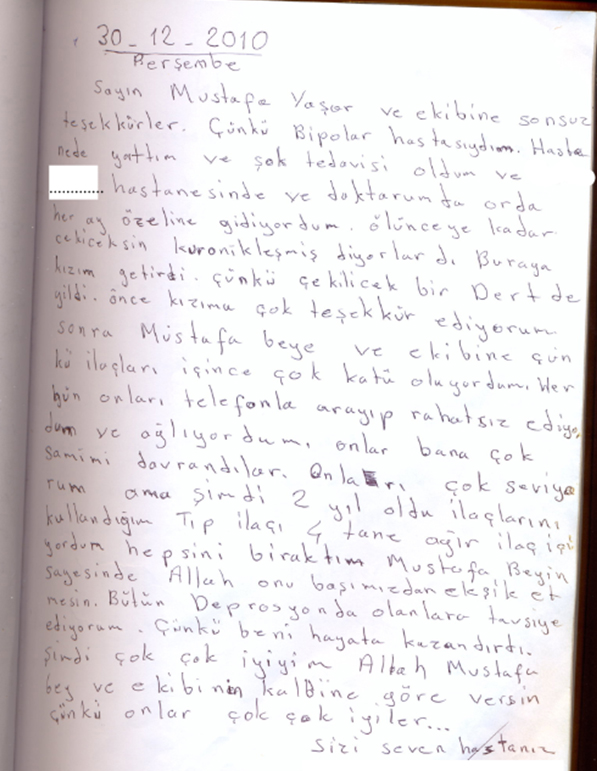 30-12-2010
Perşembe
Sayın Mustafa Yaşar ve ekibine sonsuz
teşekkürler. Çünkü Bipolar hastasıydım. Hasta
nede yattım ve şok tedavisi oldum ve
............ hastanesinde ve doktorumda orda
her ay özeline gidiyordum. ölünceye kadar
çekiceksin kuronikleşmiş diyorlardı Buraya
kızım getirdi. çünkü çekilicek bir Dert de
ğildi. önce kızıma çok teşekkür ediyorum
sonra Mustafa beye ve ekibine çün
kü ilaçları içince çok kötü oluyordum. Her
gün onları telefonla arayıp rahatsız ediyo
dum ve ağlıyordum, onlar bana çok
samimi davrandılar. Onları çok seviyo
rum ama şimdi 2 yıl oldu ilaçlarını
kullandığım Tıp ilaçı 4 tane ağır ilaç içi
yordum hepsini bıraktım Mustafa Beyin
sayesinde Allah onu başımızdan eksik et
mesin. Bütün Deprosyonda olanlara tavsiye
ediyorum. Çünkü beni hayata kazandırdı.
Şimdi çok çok iyiyim Allah Mustafa
bey ve ekibinin kalbine göre versin
çünkü onlar çok çok iyiler...
sizi seven hastanız